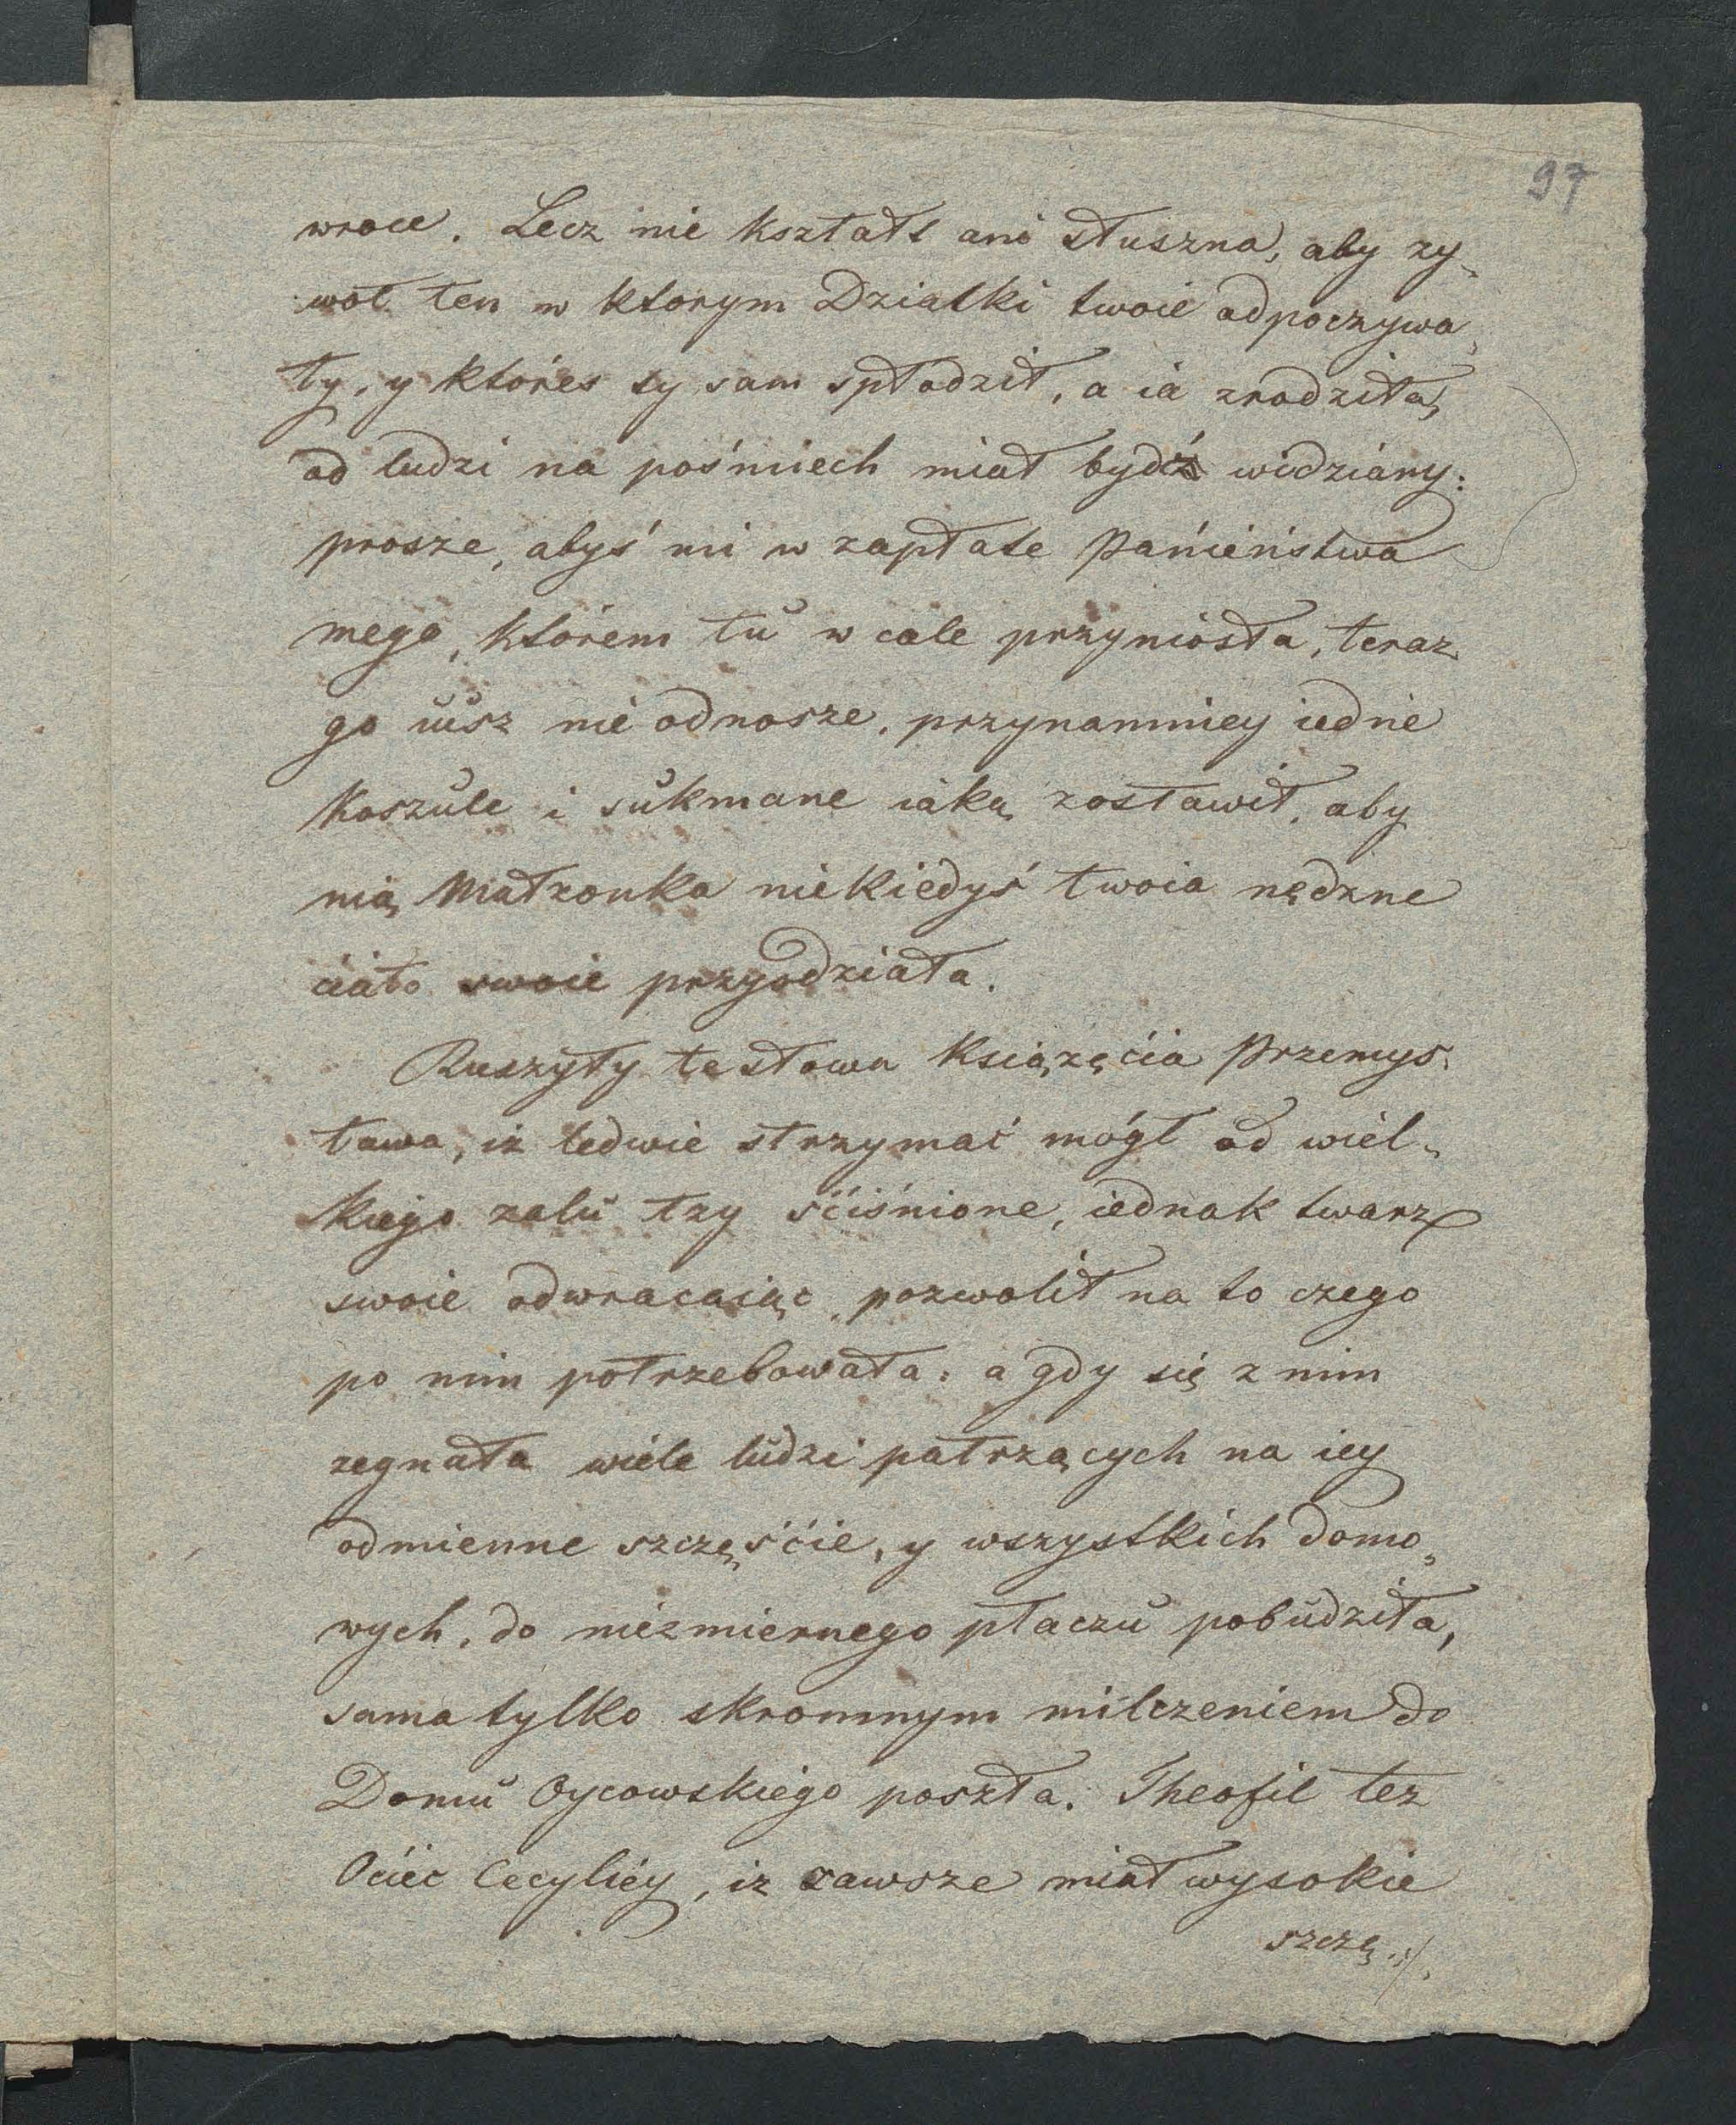 97
wroce. Lecz nie kształt ani słuszna, aby zy„
wot ten w ktorym Dziatki twoie odpoczywa„
ły, y któres ty sam spłodził, a ia zrodziła,
od ludzi na pośmiech miał bydź widziany:
prosze, abyś mi w zapłate Panieństwa
mego, którem tu w cale przyniosła, teraz
go iusz nie odnosze, przynamniey iedne
koszule i sukmane iaką zostawił, aby
nią Małzonka niekiedyś twoia nędzne
ciało swoie przyodziała.
Ruszyły te słowa Książęcia Przemys„
ława, iz ledwie strzymać mógł od wiel„
kiego zalu łzy sciśnione, iednak twarz
swoie odwracaiąc pozwolił na to czego
po nim potrzebowała: a gdy się z nim
zegnała wiele ludzi patrzących na iey
odmienne szczęście, y wszystkich domo„
wych, do niezmiernego płaczu pobudziła,
sama tylko skromnym milczeniem do
Domu Oycowskiego poszła. Theofil tez
Ociec Cecyliey, iz zawsze miał wysokie
szczę./.